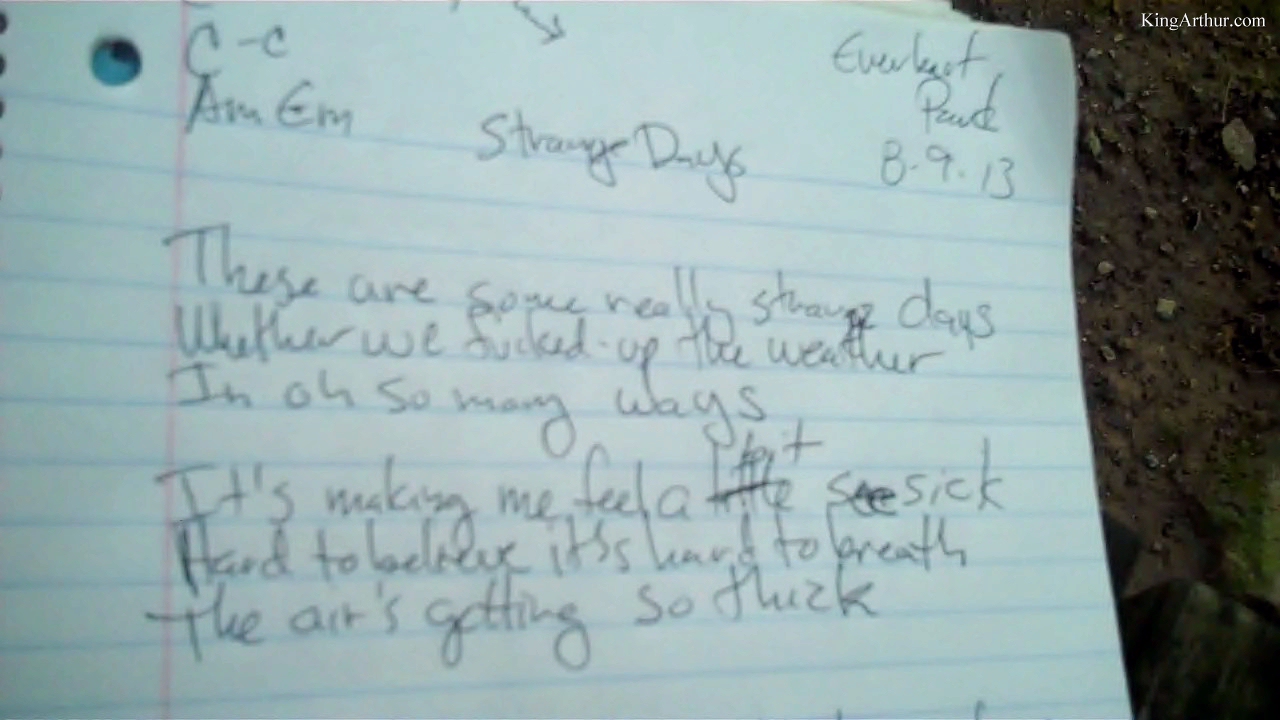 KingArthur.com
C - C
Am Em
Strange Days
8.9.13
These are some really strange days
Whether we fucked-up the weather
In oh so many ways
bit
It's making me feel a little see sick
Hard to believe it's hard to breath
The air's getting so thick